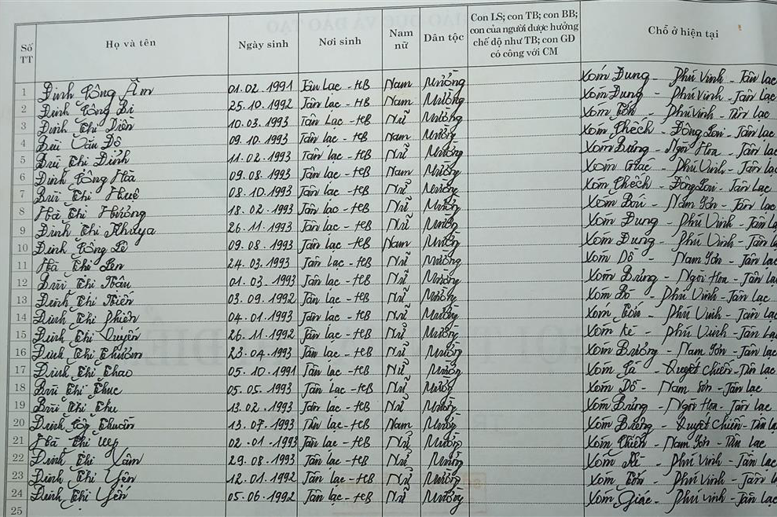 Số TT Họ và tên Ngày sinh Nơi sinh Nam nữ Dân tộc Con LS; con TB; con BB; con của người được hưởng chế độ như TB; con GĐ có công với CM Chỗ ở hiện tại
1 Đinh Công Ấm 01.02.1991 Tân Lạc - HB Nam Mường Xóm Dung - Phú Vinh - Tân Lạc
2 Đinh Công Bi 25.10.1992 Tân Lạc - HB Nam Mường Xóm Dung - Phú Vinh - Tân Lạc
3 Đinh Thị Diên 10.03.1993 Tân Lạc - HB Nữ Mường Xóm - Phú Vinh - Tân Lạc
4 Bùi Văn Đô 09.10.1993 Tân Lạc - HB Nam Mường Xóm - Tân Lạc
5 Bùi Thị Đinh 11.02.1993 Tân Lạc - HB Nữ Mường Xóm - Ngòi Hoa - Tân Lạc
6 Đinh Công Hà 09.08.1993 Tân Lạc - HB Nam Mường Xóm - Phú Vinh - Tân Lạc
7 Bùi Thị Huệ 08.10.1993 Tân Lạc - HB Nữ Mường Xóm - Tân Lạc
8 Hà Thị Hường 18.02.1993 Tân Lạc - HB Nữ Mường Xóm - Nam Sơn - Tân Lạc
9 Đinh Thị 26.11.1993 Tân Lạc - HB Nữ Mường Xóm Dung - Phú Vinh - Tân Lạc
10 Đinh Công Lê 09.08.1993 Tân Lạc - HB Nam Mường Xóm Dung - Phú Vinh - Tân Lạc
11 Hà Thị Len 24.03.1993 Tân Lạc - HB Nữ Mường Xóm Dô - Nam Sơn - Tân Lạc
12 Bùi Thị 01.03.1993 Tân Lạc - HB Nữ Mường Xóm - Ngòi Hoa - Tân Lạc
13 Đinh Thị 03.09.1992 Tân Lạc - HB Nữ Mường Xóm - Phú Vinh - Tân Lạc
14 Đinh Thị Phiên 04.01.1993 Tân Lạc - HB Nữ Mường Xóm - Phú Vinh - Tân Lạc
15 Đinh Thị Quyến 26.11.1992 Tân Lạc - HB Nữ Mường Xóm - Phú Vinh - Tân Lạc
16 Đinh Thị 23.04.1993 Tân Lạc - HB Nữ Mường Xóm - Nam Sơn - Tân Lạc
17 Đinh Thị Thao 05.10.1991 Tân Lạc - HB Nữ Mường Xóm - Quyết Chiến - Tân Lạc
18 Bùi Thị Thục 05.05.1993 Tân Lạc - HB Nữ Mường Xóm Dô - Nam Sơn - Tân Lạc
19 Bùi Thị Thu 13.02.1993 Tân Lạc - HB Nữ Mường Xóm - Ngòi Hoa - Tân Lạc
20 Đinh Công 13.07.1993 Tân Lạc - HB Nam Mường Xóm - Quyết Chiến - Tân Lạc
21 Hà Thị 02.01.1993 Tân Lạc - HB Nữ Mường Xóm - Nam Sơn - Tân Lạc
22 Đinh Thị Xâm 29.08.1993 Tân Lạc - HB Nữ Mường Xóm - Phú Vinh - Tân Lạc
23 Đinh Thị Yên 12.01.1992 Tân Lạc - HB Nữ Mường Xóm - Phú Vinh - Tân Lạc
24 Đinh Thị Yến 05.06.1992 Tân Lạc - HB Nữ Mường Xóm Giác - Phú Vinh - Tân Lạc
25